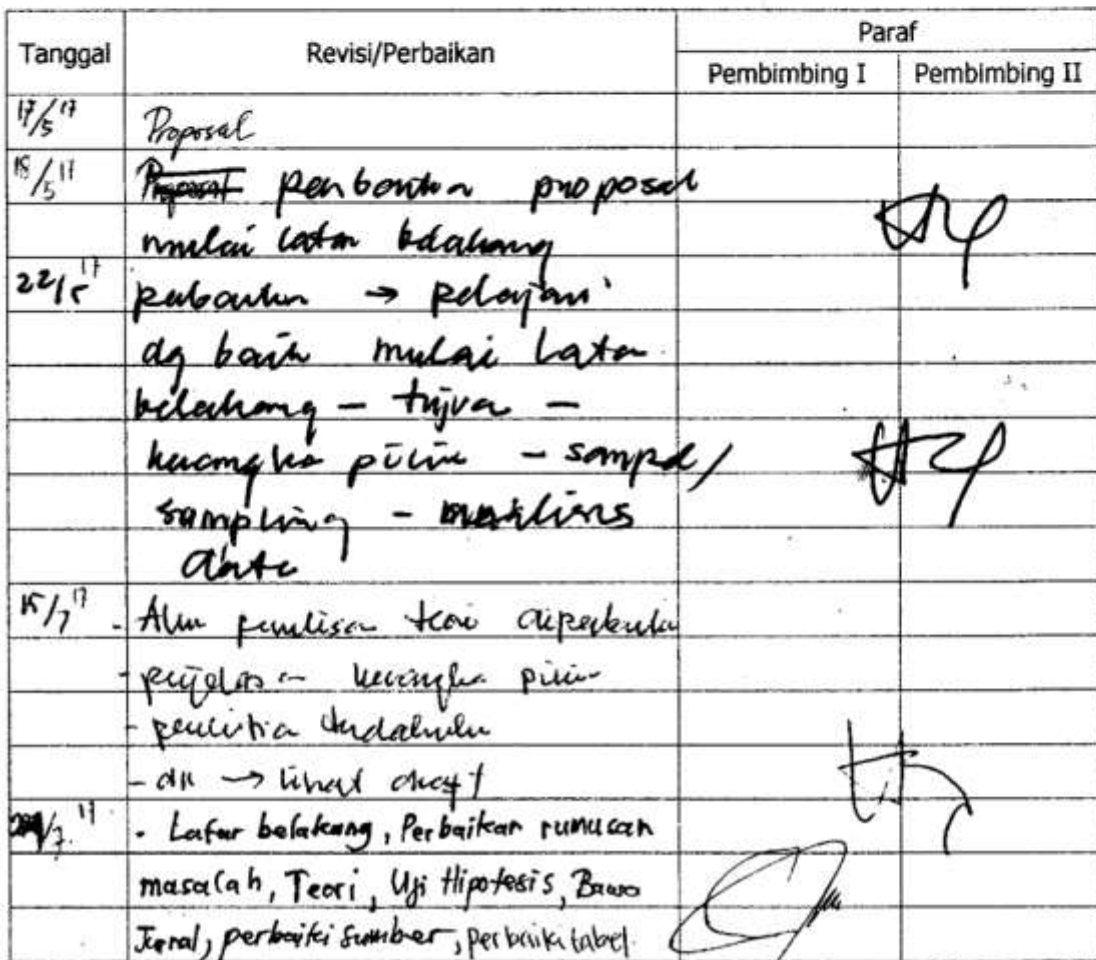 Tanggal Revisi/Perbaikan Paraf
Pembimbing I Pembimbing II
17/5 17 Proposal
18/5 17 Proposal perbaikan proposal
mulai latar belakang
22/5 17 perbaikan → pelajari
dg baik mulai latar
belakang - tujuan -
kerangka pikir - sampel/
sampling - analisis
data
15/7 17 - Alur penulisan teori diperbaiki
- penjelasan kerangka pikir
- penelitian terdahulu
- dll → lihat draft
/7. 17 - Latar belakang, Perbaikan rumusan
masalah, Teori, Uji Hipotesis, Bawa
Jurnal, perbaiki sumber, perbaiki tabel.